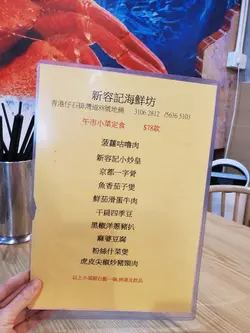 新容記海鮮坊
3106 2812 (5636 5310)
午市小菜定食 $78款
菠蘿咕嚕肉
新容記小炒皇
京都一字骨
魚香茄子煲
鮮茄滑蛋牛肉
干碼四季豆
黑椒洋蔥豬扒
麻婆豆腐
粉絲什菜煲
虎皮尖椒炒豬頸肉